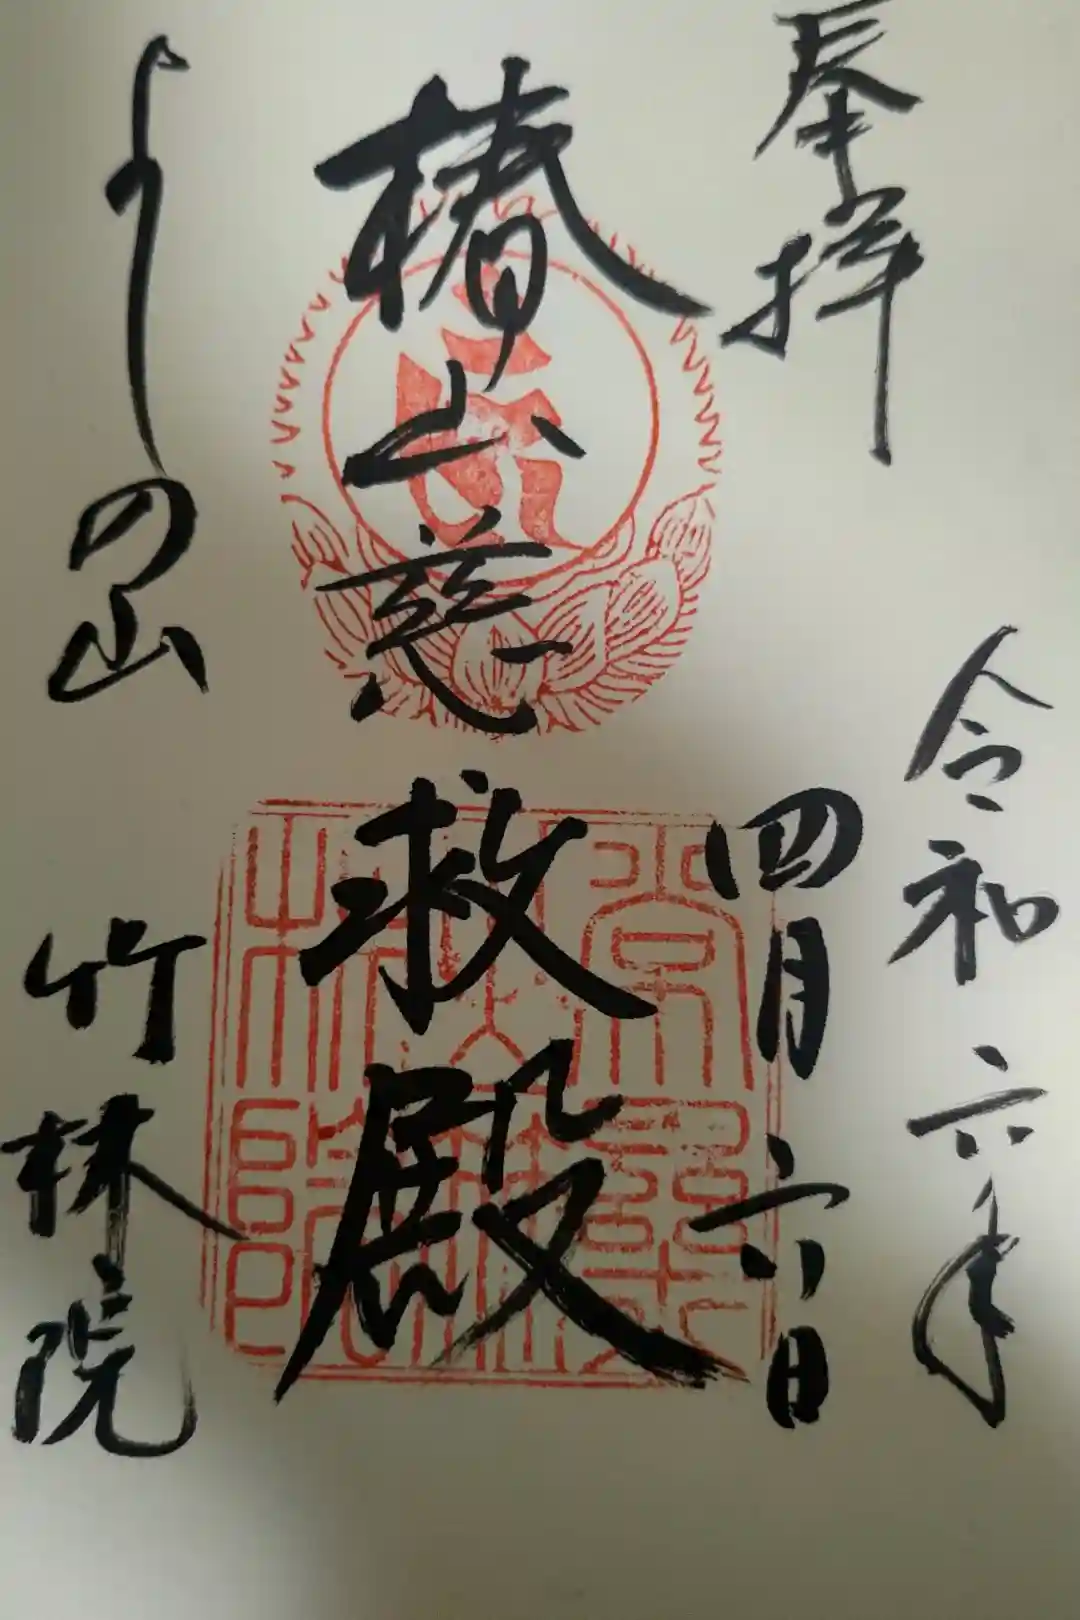 奉拝
令和六年
四月六日
椿山慈救殿
よしの山
竹林院